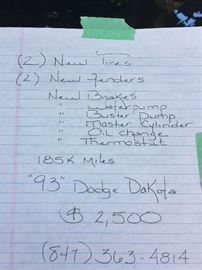 (2) New Tires
(2) New Fenders
New Brakes
" Waterpump
" Buster Pump
" Master Cylinder
" Oil change
" Thermostat
185K Miles
"93" Dodge DaKota
$ 2,500
(847) 363-4814